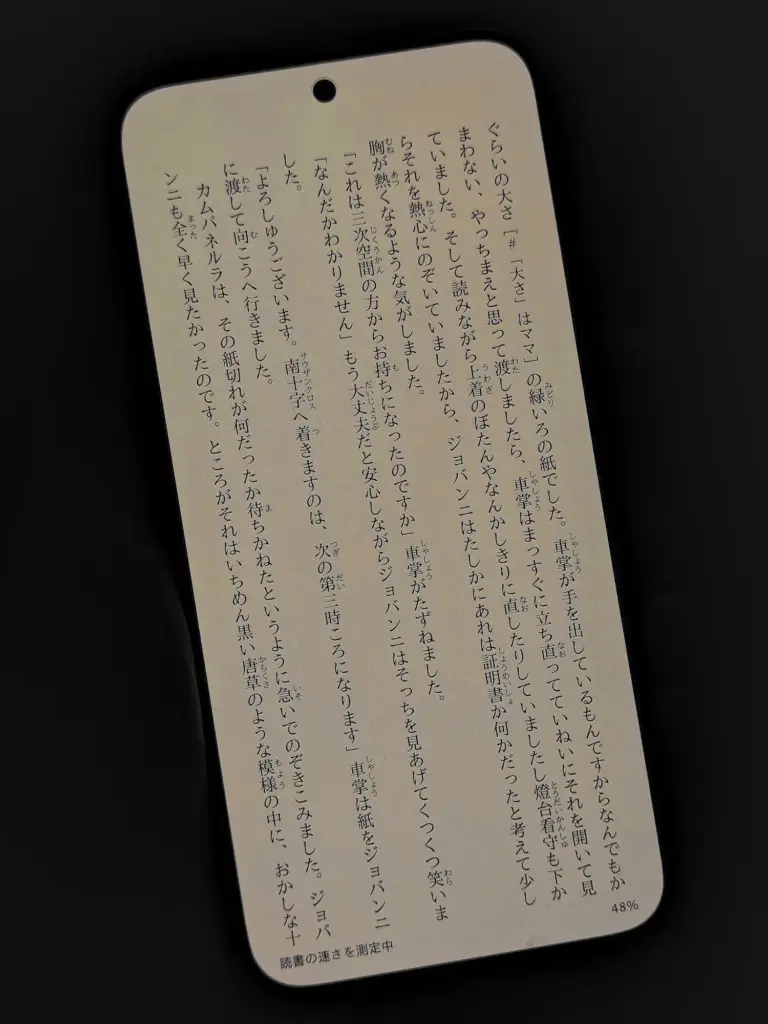 ぐらいの大さ［＃「大さ」はママ］の緑いろの紙でした。車掌が手を出しているもんですからなんでもか
まわない、やっちまえと思って渡しましたら、車掌はまっすぐに立ち直ってていねいにそれを開いて見
ていました。そして読みながら上着のぼたんやなんかしきりに直したりしていましたし燈台看守も下か
らそれを熱心にのぞいていましたから、ジョバンニはたしかにあれは証明書か何かだったと考えて少し
胸が熱くなるような気がしました。
「これは三次空間の方からお持ちになったのですか」車掌がたずねました。
「なんだかわかりません」もう大丈夫だと安心しながらジョバンニはそっちを見あげてくつくつ笑いま
した。
「よろしゅうございます。南十字へ着きますのは、次の第三時ころになります」車掌は紙をジョバンニ
に渡して向こうへ行きました。
カムパネルラは、その紙切れが何だったか待ちかねたというように急いでのぞきこみました。ジョバ
ンニも全く早く見たかったのです。ところがそれはいちめん黒い唐草のような模様の中に、おかしな十
読書の速さを測定中
48%